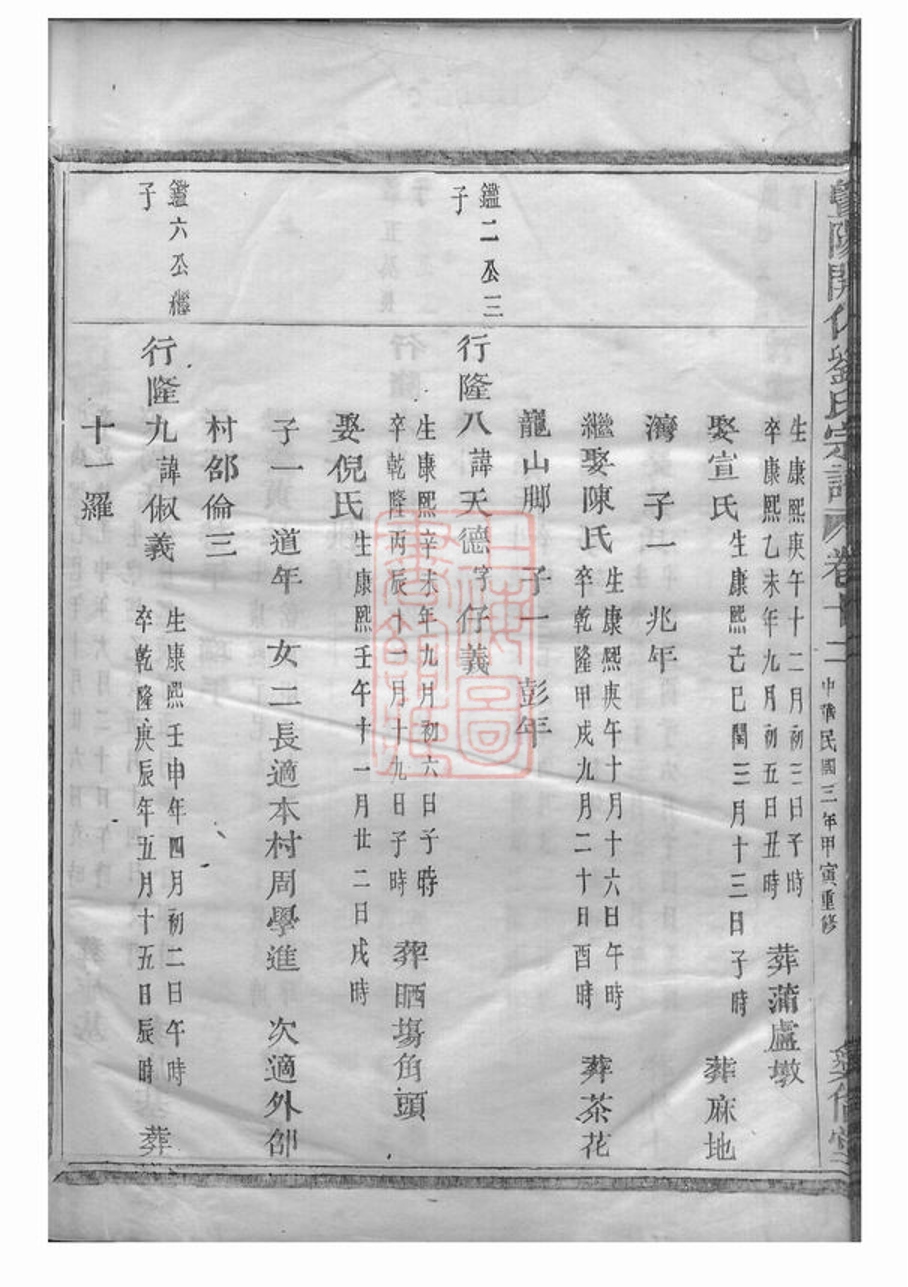 暨陽開化劉氏宗譜 卷十二 中華民國三年甲寅重修
生康熙庚午十二月初三日子時
卒康熙乙未年九月初五日丑時 葬蒲盧墩
娶宣氏 生康熙己巳閏三月十三日子時 葬麻地
灣 子一 兆年
繼娶陳氏 生康熙庚午十月十六日午時
卒乾隆甲戌九月二十日酉時 葬茶花
龍山脚 子一 彭年
鑑二公三
子
行隆八 諱天德 字仔義
生康熙辛未年九月初六日子時
卒乾隆丙辰十一月十九日子時 葬晒塲角頭
娶倪氏 生康熙壬午十一月廿二日戌時
子一 道年 女二 長適本村周學進 次適外邵
村邵倫三
鑑六公繼
子
行隆九 諱俶義 生康熙壬申年四月初二日午時
卒乾隆庚辰年五月十五日辰時 葬
十一羅
上海圖書館藏